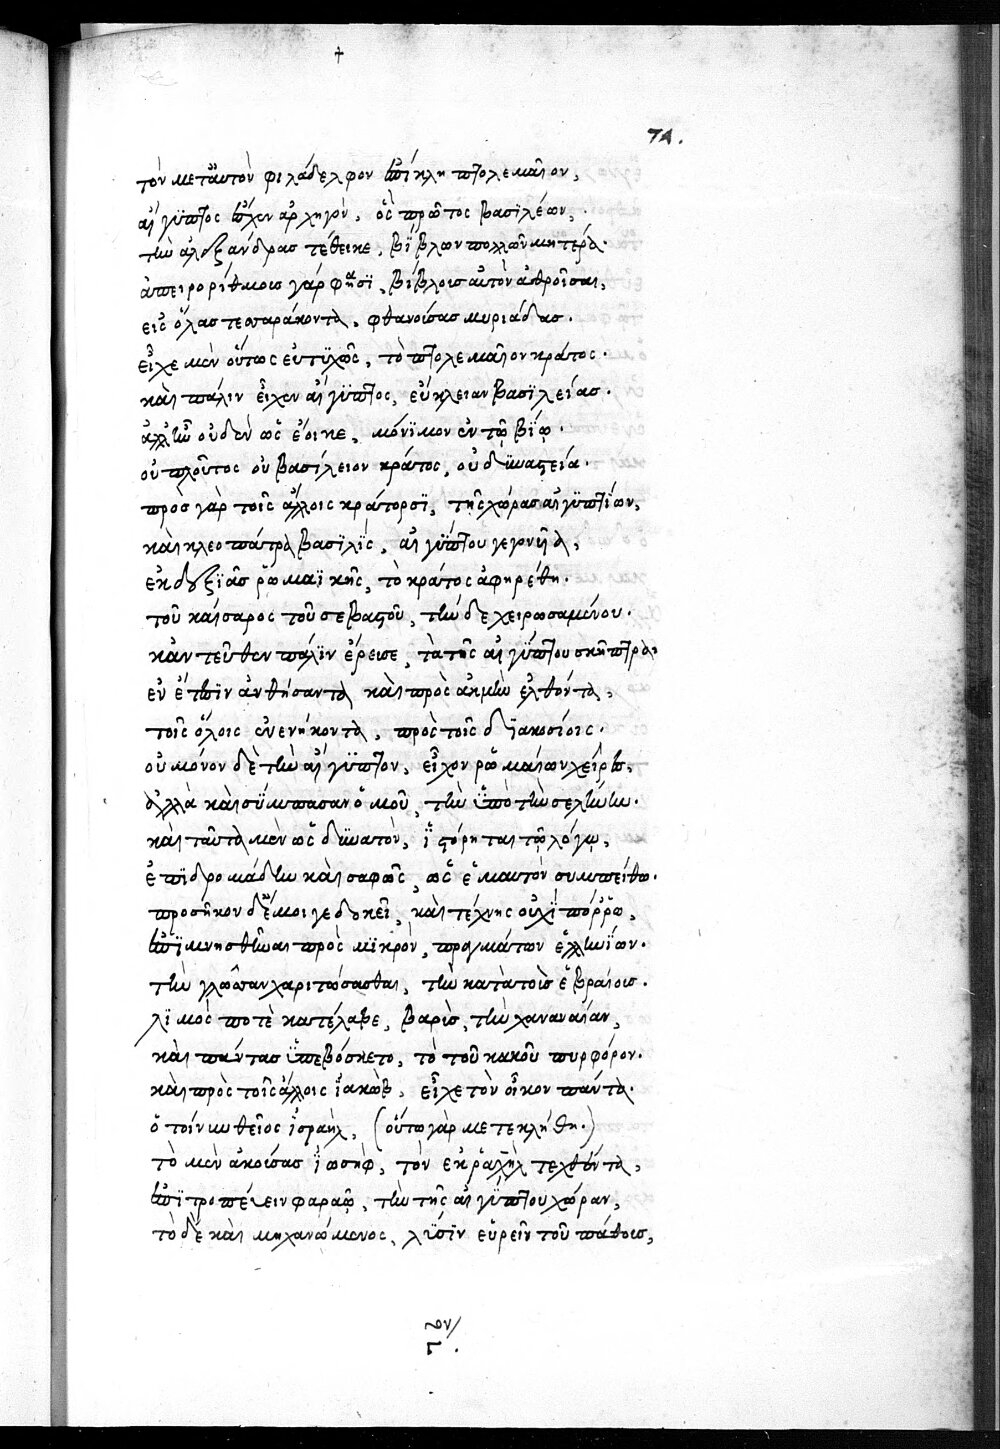 †
71.
τὸν μετ' αὐτὸν φιλάδελφον ἐπίκλη πτολεμαῖον,
αἴγυπτος ἔσχεν ἀρχηγὸν, ὃς πρῶτος βασϊλέων,
τὴν ἀλεξάνδρας τέθεικε, βίβλων πολλῶν μητέρα.
ἀπειραρίθμοις γάρ φασϊ, βίβλοις αὐτὸν ἀθροῖσαι,
εἰς ὅλας τεσσαράκοντα, φθανούσας μυριάδας.
εἶχε μὲν οὕτως εὐτϋχῶς, τὸ πτολεμαῖον κράτος.
καὶ πάλιν εἶχεν αἴγϋπτος, εὔκλειαν βασϊλείας.
ἀλλ' ἦν οὐδὲν ὡς ἔοικε, μόνϊμον ἐν τῷ βίῳ.
οὐ πλοῦτος οὐ βασίλειον κράτος, οὐ δϋναστεία.
πρὸς γὰρ τοῖς ἄλλοις κράτορσϊ, τῆς χώρας αἰγϋπτίων,
καὶ κλεοπάτρα βασϊλὶς, αἰγύπτου γεγονυῖα,
ἐκ δεξϊᾶς ῥωμαϊκῆς, τὸ κράτος ἀφῃρέθη.
τοῦ καίσαρος τοῦ σεβαστοῦ, τήνδε χειρωσαμένου.
κἀντεῦθεν πάλϊν ἔρεισε, τὰ τῆς αἰγύπτου σκῆπτρα,
ἐν ἔτεσϊν ἀνθήσαντα καὶ πρὸς ἀκμὴν ἐλθόντα,
τοῖς ὅλοις ἐνενήκοντα, πρὸς τοῖς δϊακοσίοις.
οὐ μόνον δὲ τὴν αἴγϋπτον, εἶχον ῥωμαίων χεῖρες,
ἀλλὰ καὶ σύμπασαν ὁμοῦ, τὴν ὑπὸ τὴν σελήνην.
καὶ ταῦτα μὲν ὡς δϋνατὸν, ἱστόρηται τῷ λόγῳ,
ἐπϊδρομάδην καὶ σαφῶς, ὡς ἐμαυτὸν συμπείθω.
προσῆκον δ' ἔμοιγε δοκεῖ, καὶ τέχνης οὐχὶ πόῤῥω,
ἐπϊμνησθῆναι πρὸς μϊκρὸν, πραγμάτων ἑλληνϊων.
τὴν γλῶσσαν χαριτώσασθαι, τὴν κατὰ τοὺς ἑβραίους.
λϊμὸς ποτὲ κατέλαβε, βαρὺς, τὴν χαναναίαν,
καὶ πάντας ὑπεβόσκετο, τὸ τοῦ κακοῦ πυρφόρον.
καὶ πρὸς τοῖς ἄλλοις ἰακὼβ, εἶχε τὸν οἶκον πάντα.
ὁ τοίνυν θεῖος ἰσραὴλ, (οὕτω γὰρ μετεκλήθη.)
τὸ μὲν ἀκούσας ἰωσὴφ, τὸν ἐκ ῥαχὴλ τεχθέντα,
ἐπϊτροπεύειν φαραῶ, τὴν τῆς αἰγύπτου χώραν,
τὸ δὲ καὶ μηχανώμενος, λύσϊν εὑρεῖν τοῦ πάθους,